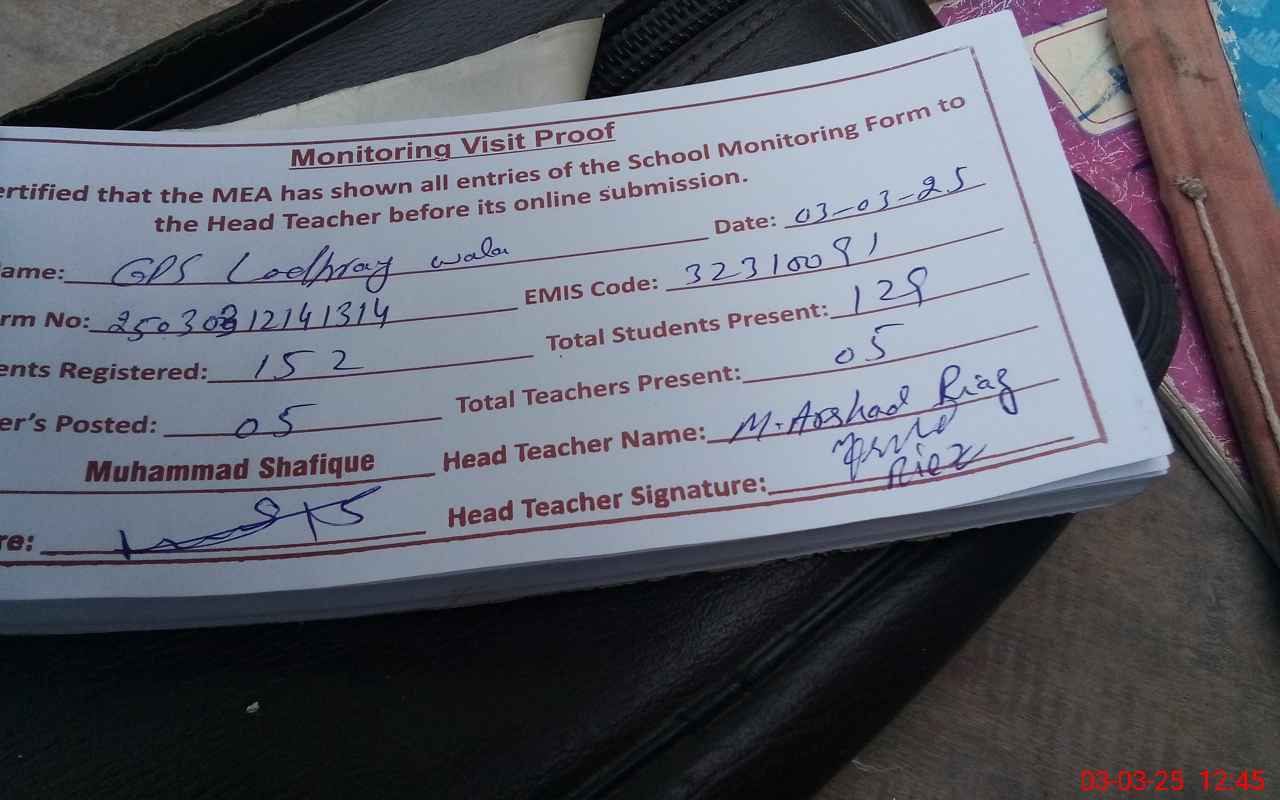 Monitoring Visit Proof
ertified that the MEA has shown all entries of the School Monitoring Form to
the Head Teacher before its online submission.
ame: GPS Lodhray wala Date: 03-03-25
rm No: 12141314 EMIS Code: 32310091
ents Registered: 152 Total Students Present: 129
er's Posted: 05 Total Teachers Present: 05
Muhammad Shafique Head Teacher Name: M. Arshad Riaz
re: Head Teacher Signature:
03-03-25 12:45